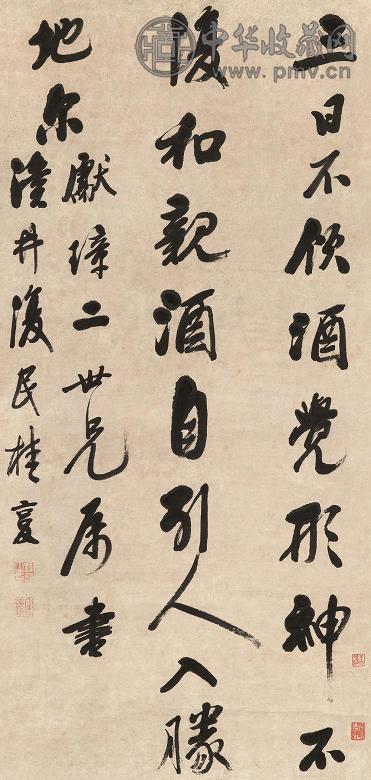 中华收藏网
www.pmv.cn
三日不飲酒覺形神不
復和親酒自引人入勝
地尔
獻璋二世兄属書
瀆井復民桂馥